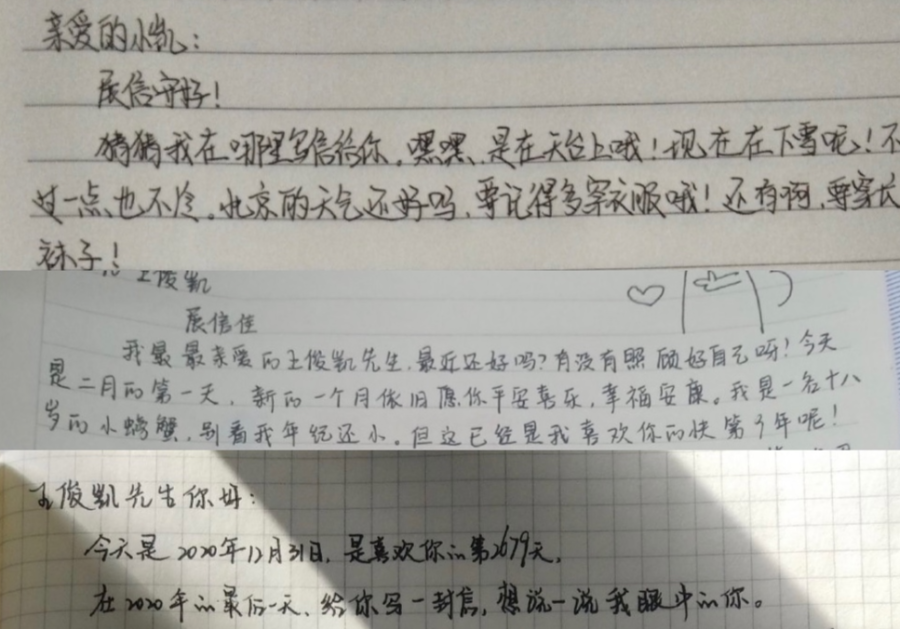 亲爱的小凯：
展信安好！
猜猜我在哪里写信给你，嘿嘿、是在天台上哦！现在在下雪呢！不
过一点也不冷。北京的天气还好吗，要记得多穿衣服哦！还有啊，要穿长
袜子！
王俊凯
展信佳
我最最亲爱的王俊凯先生，最近还好吗？有没有照顾好自己呀！今天
是二月的第一天，新的一个月依旧愿你平安喜乐，幸福安康。我是一名十八
岁的小螃蟹，别看我年纪还小。但这已经是我喜欢你的快第7年呢！
王俊凯先生你好：
今天是2020年12月31日，是喜欢你的第2679天，
在2020年的最后一天、给你写一封信，想说一说我眼中的你。